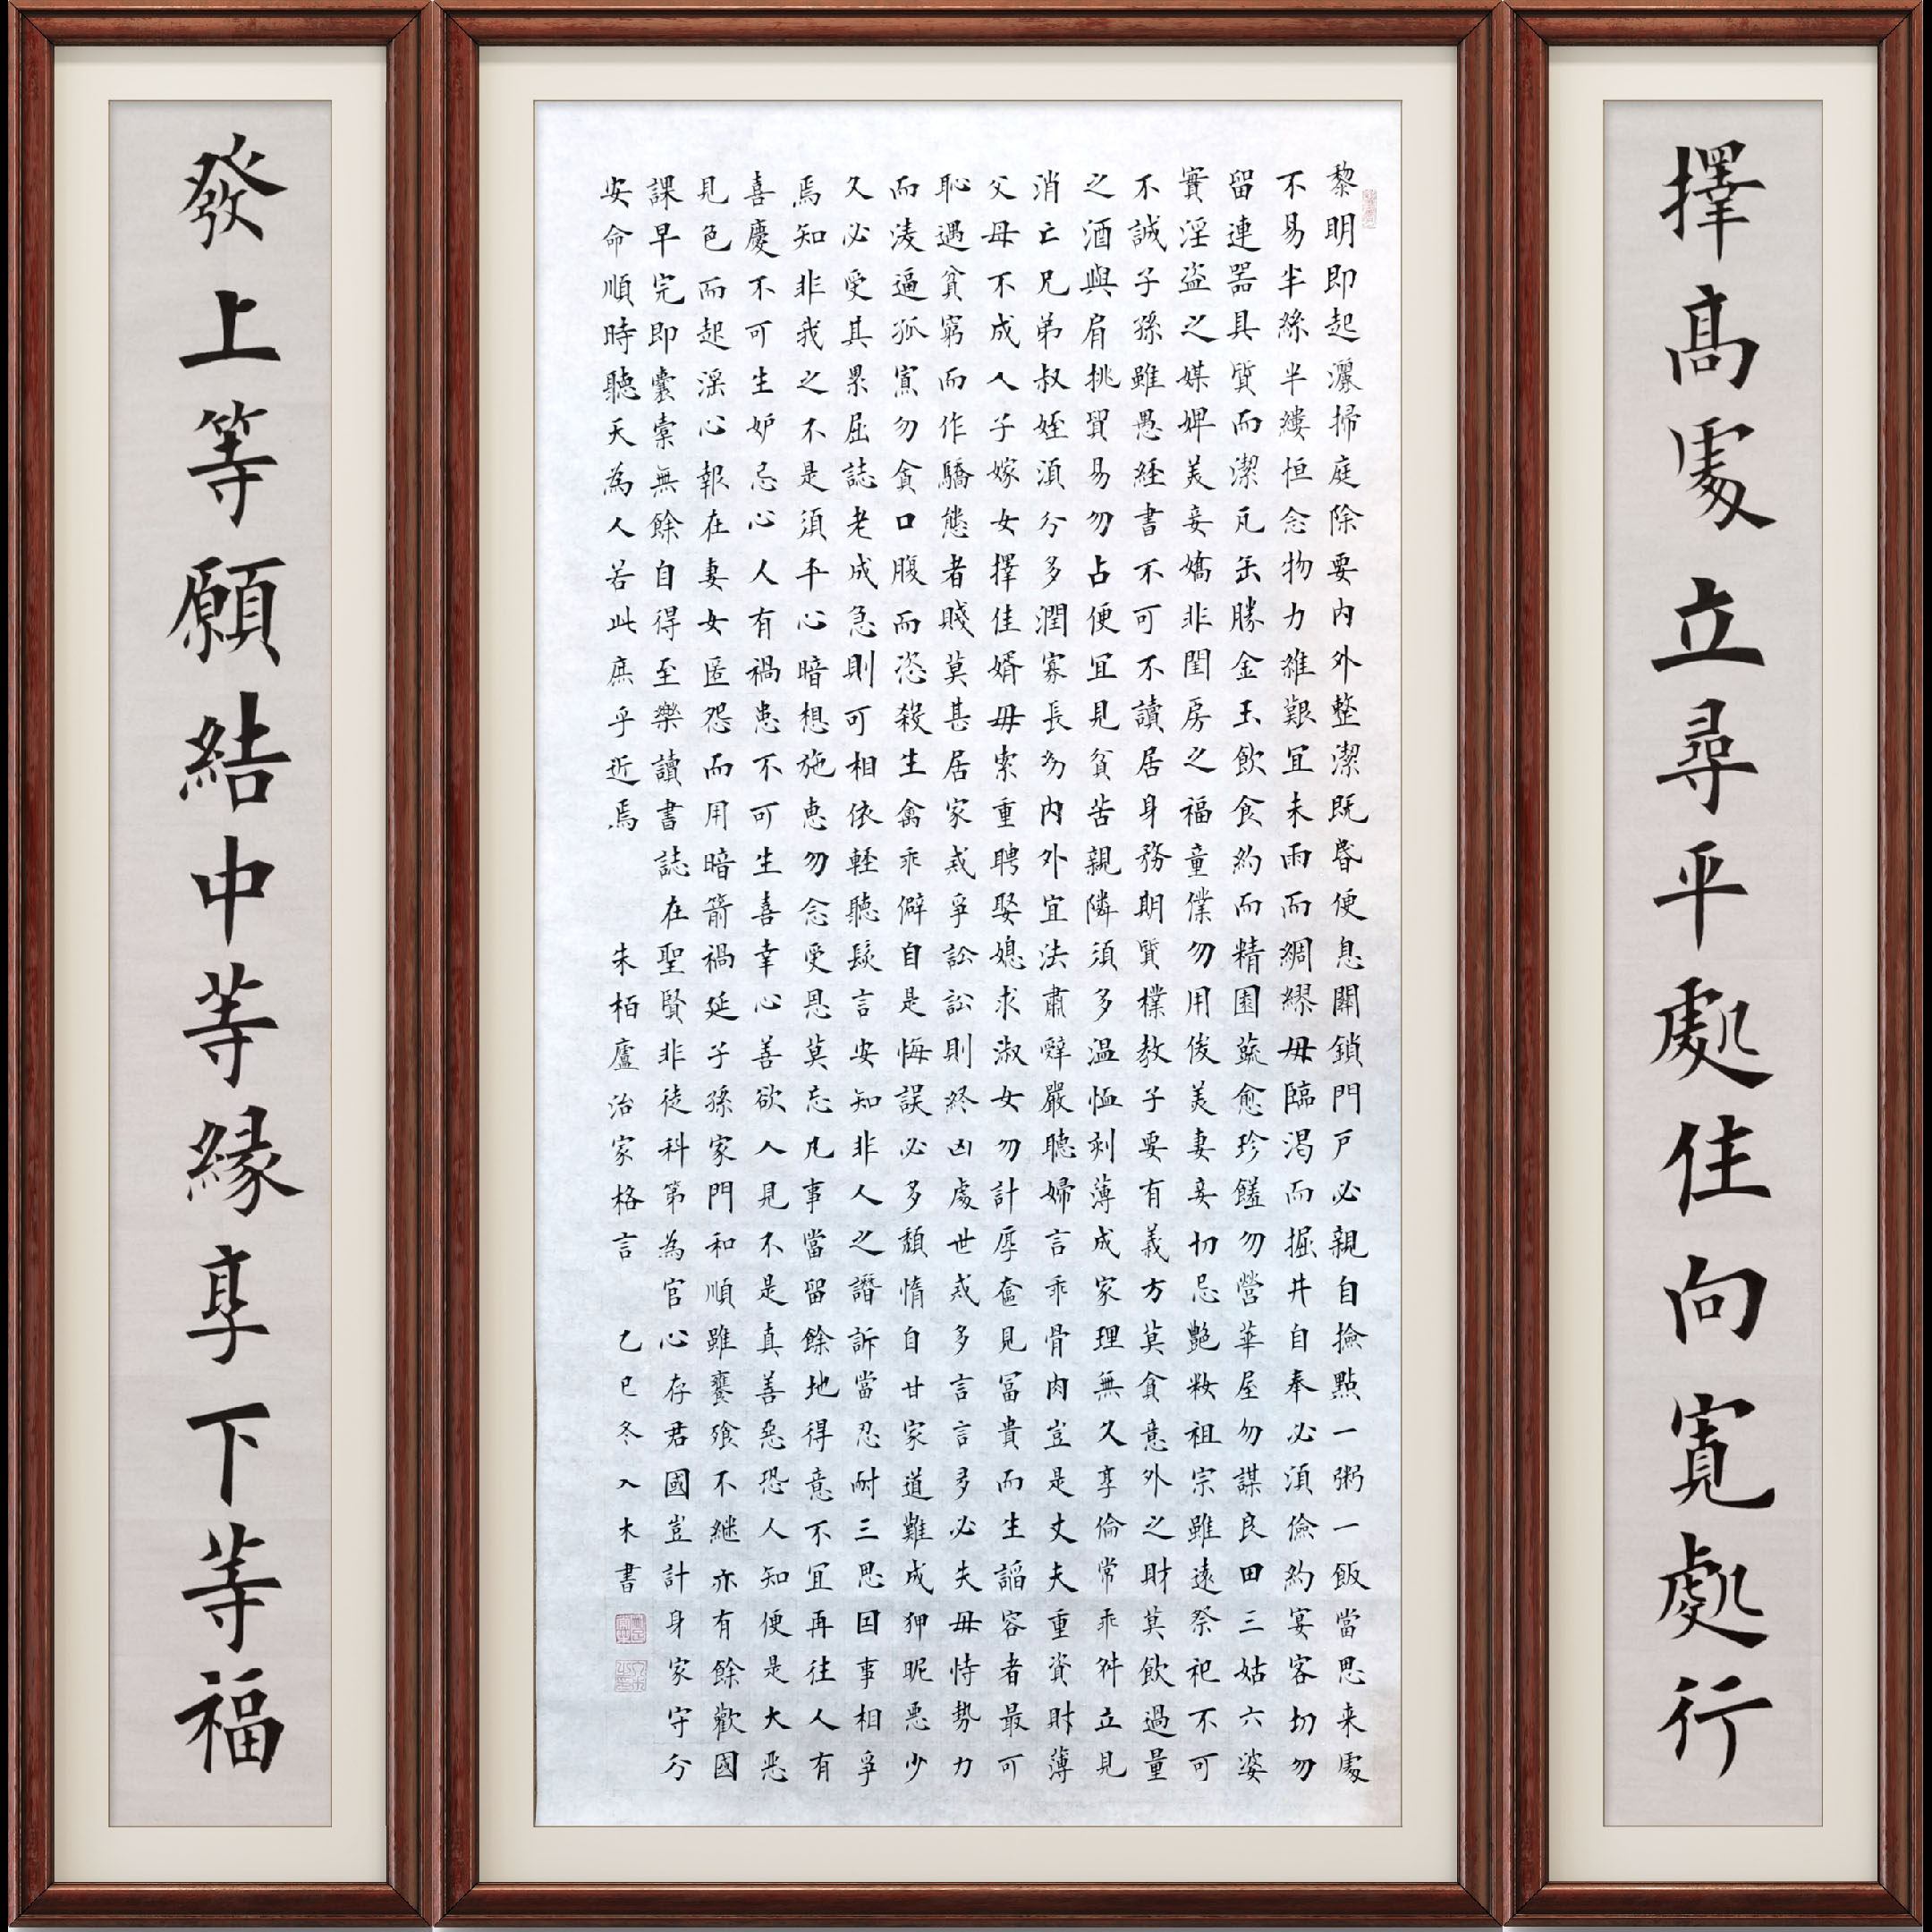 擇高處立尋平處住向寬處行
黎明即起灑掃庭除要內外整潔既昬便息關鎖門戶必親自撿點一粥一飯當思来處
不易半絲半縷恒念物力維艱宜未雨而綢繆毋臨渴而掘井自奉必須儉約宴客切勿
留連器具質而潔瓦缶勝金玉飲食約而精園蔬愈珍饈勿營華屋勿謀良田三姑六婆
實淫盜之媒婢美妾嬌非閨房之福童僕勿用俊美妻妾切忌艷妝祖宗雖遠祭祀不可
不誠子孫雖愚經書不可不讀居身務期質樸教子要有義方莫貪意外之財莫飲過量
之酒與肩挑貿易勿占便宜見貧苦親隣須多温恤刻薄成家理無久享倫常乖舛立見
消亡兄弟叔姪須分多潤寡長幼內外宜法肅辭嚴聽婦言乖骨肉豈是丈夫重資財薄
父母不成人子嫁女擇佳婿毋索重聘娶媳求淑女勿計厚奩見富貴而生諂容者最可
恥遇貧窮而作驕態者賤莫甚居家戒爭訟訟則終凶處世戒多言言多必失毋恃勢力
而凌逼孤寡勿貪口腹而恣殺生禽乖僻自是悔誤必多頹惰自甘家道難成狎昵惡少
久必受其累屈誌老成急則可相依輕聽發言安知非人之譖訴當忍耐三思因事相爭
焉知非我之不是須平心暗想施惠勿念受恩莫忘凡事當留餘地得意不宜再往人有
喜慶不可生妒忌心人有禍患不可生喜幸心善欲人見不是真善惡恐人知便是大惡
見色而起淫心報在妻女匿怨而用暗箭禍延子孫家門和順雖饔飧不継亦有餘歡國
課早完即囊橐無餘自得至樂讀書誌在聖賢非徒科第為官心存君國豈計身家守分
安命順時聽天為人若此庶乎近焉 朱柏廬治家格言 乙巳冬入木書
發上等願結中等緣享下等福